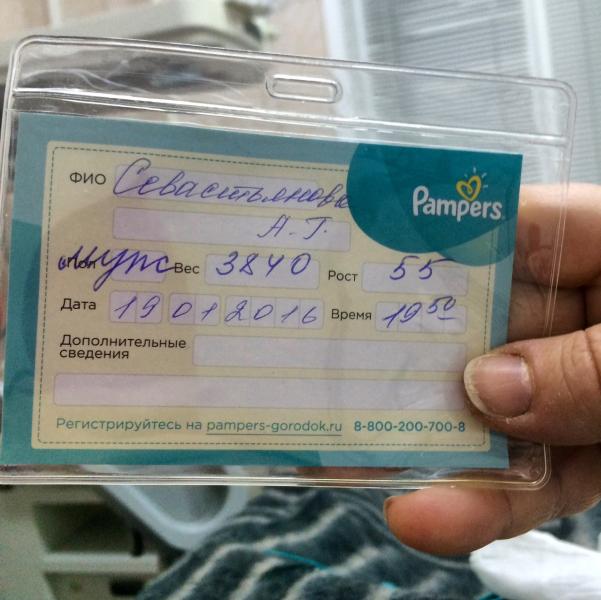 ФИО Севастьянова
Pampers
А. Г.
Пол муж Вес 3840 Рост 55
Дата 19 01 2016 Время 19 50
Дополнительные
сведения
Регистрируйтесь на pampers-gorodok.ru 8-800-200-700-8